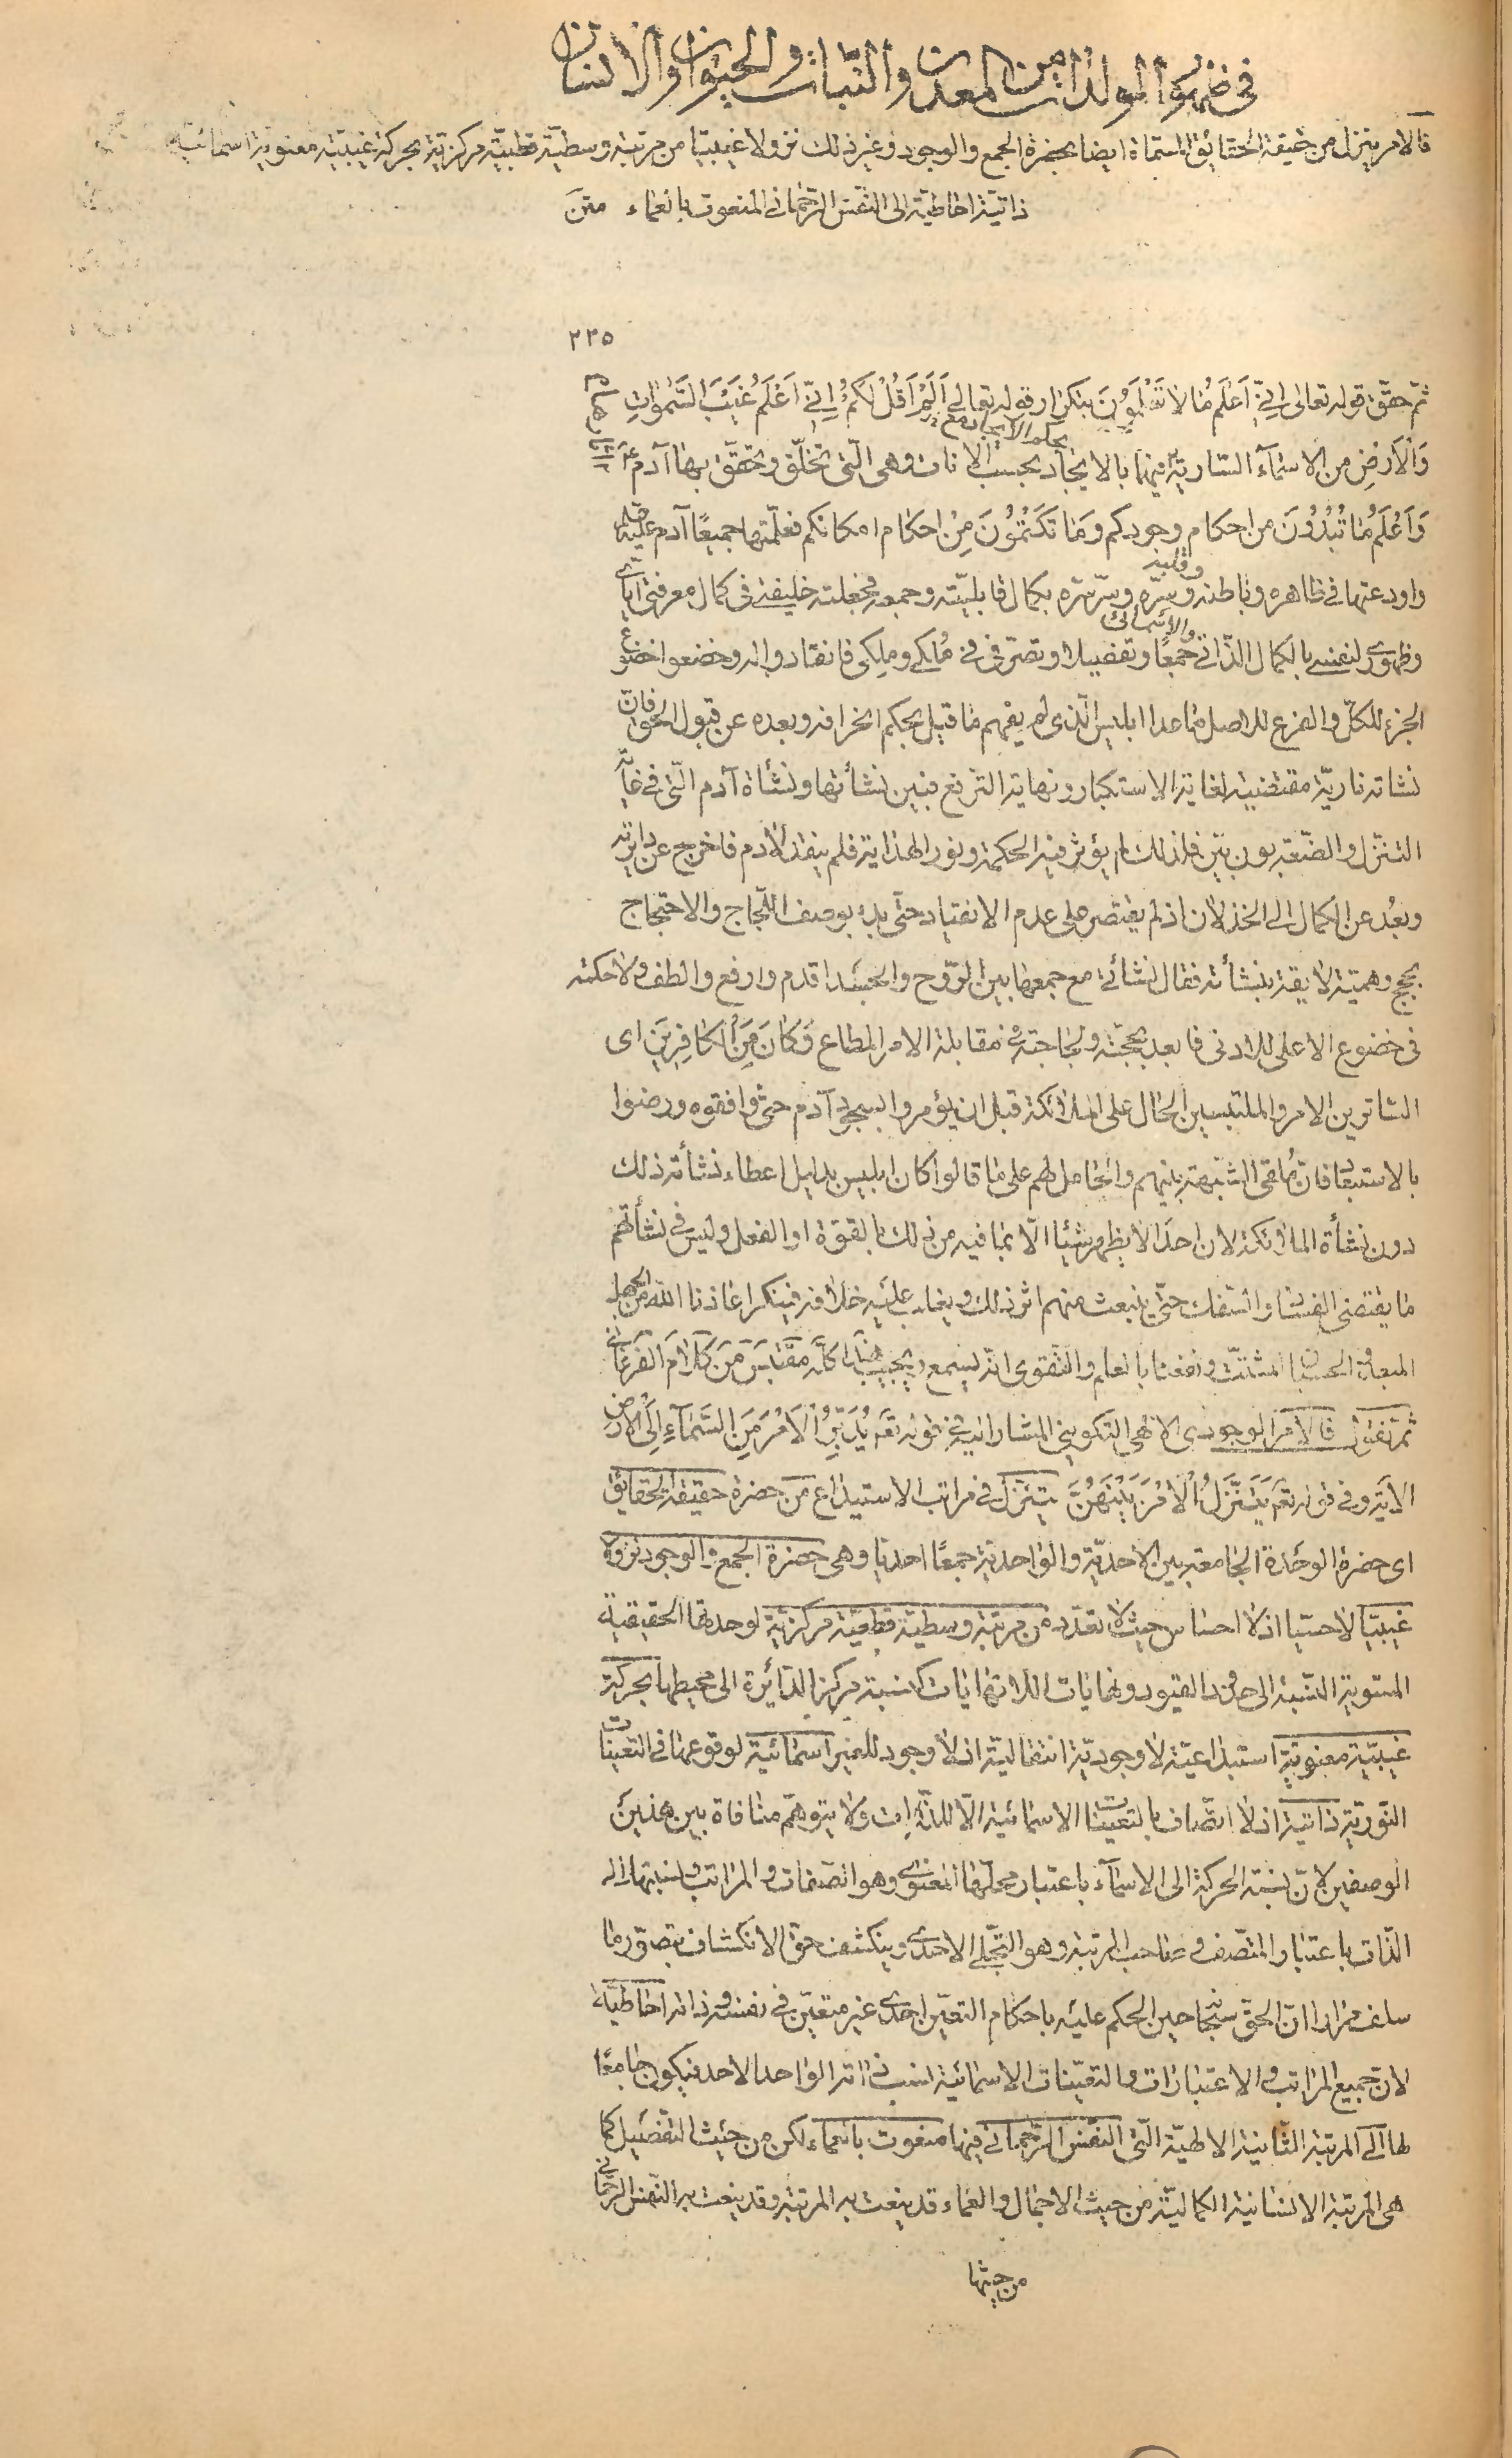 في ظهور المولدات من المعدن والنبات والحيوان والانسان
فالامر يتنزل من حقيقة الحقائق المسماة ايضا بحضرة الجمع والوجود وغير ذلك نزولا غيبيا من مرتبة وسطية قطبية مركزية بحركة غيبية معنوية اسمائية
ذاتية احاطية الى النفس الرحماني المنعوت بالعماء متن
٢٣٥
ثم حقق قوله تعالى اِنّي اَعْلَمُ مَا لا تَعْلَمُونَ بتكرار قوله تعالى اَلَمْ اَقُلْ لَكُمْ اِنّي اَعْلَمُ غَيْبَ السَّمٰوَاتِ
وَالْاَرْضِ من الاسماء السارية فيهما بالايجاد بحسب الانات وهى الّتى تخلّق وتحقّق بها آدم ع
وَاَعْلَمُ مَا تُبْدُونَ من احكام وجودكم وَمَا تَكْتُمُونَ مِنْ احكام امكانكم فعلّمتها جميعًا آدم
واودعتها في ظاهره وباطنه وقلبه وسرّه وسرّ سرّه بكمال قابليّته وجمعه فجعلته خليفة في كمال معرفتى ايّاى
وظهورى لنفسى بالكمال الذّاتي والاسمائى جمعًا وتفصيلا وتصرّفى في مُلكى وملكى فانقادوا له وخضعوا خضوع
الجزء للكلّ والفرع للاصل ما عدا ابليس الّذى لم يفهم ما قيل بحكم انحرافه وبعده عن قبول الحق فانّ
نشاته ناريّة مقتضية لغاية الاستكبار ونهاية الترفع فبين نشأتها ونشأة آدم الّتى في غاية
التنزل والضّعة بون بيّن فلذلك لم يؤثر فيه الحكمة ونور الهداية فلم ينقد لآدم فاخرج عن دايرته
وبعُد عن الكمال الى الخذلان اذ لم يقتصر على عدم الانقياد حتّى بدء بوصف اللّجاج والاحتجاج
بحجج وهميّة لايقة بنشأته فقال نشأتى مع جمعها بين الرّوح والجسد اقدم وارفع والطف ولا حكمة
في خضوع الاعلى للادنى فابعد بحجّته ولجاجته في مقابلة الامر المطاع وَكَانَ مِنَ الْكَافِرِينَ اى
الساترين الامر والملتبسين الحال على الملائكة قبل ان يؤمروا بسجود آدم حتى وافقوه ورضوا
بالاستبعاد فان مُلقى الشبهة بينهم والحامل لهم على ما قالوا كان ابليس بدليل اعطاء نشأته ذلك
دون نشأة الملائكة لان احدًا لا يظهر شيئا الّا بما فيه من ذلك بالقوّة او الفعل وليس في نشأتهم
ما يقتضى الفساد والسّفك حتّى ينبعث منهم اثر ذلك ويغلب عليه خلافه فينكر اعاذنا الله من الجهل
المشتّت ونفعنا بالعلم والتّقوى انّه يسمع ويجيب هذا كلّه مقتبس من كلام الفرغانى
ثم نقول فالامر الوجودى الالهى التكوينى المشار اليه في قوله تعَ يُدَبِّرُ الْاَمْرَ مِنَ السَّمَآءِ اِلَى الْاَرْضِ
الاية وفي قوله تعَ يَتَنَزَّلُ الْاَمْرُ بَيْنَهُنَّ يتنزّل في مراتب الاستيداع من حضرة حقيقة الحقايق
اى حضرة الوحدة الجامعة بين الاحديّة والواحدية جمعًا احديا وهى حضرة الجمع والوجود نزولا
غيبيّا لا حسّيا اذ لا احساس حيث لا تعدّد من مرتبة وسطيّة قطبيّة مركزيّة لوحدتها الحقيقية
المستوية النسبة الى حدود القيود ونهايات اللانهايات كنسبة مركز الدّائرة الى محيطها بحركة
غيبيّة معنويّة استيداعيّة لا وجوديّة انتقاليّة اذ لا وجود للغير اسمائيّة لوقوعها في التعيّنات
النّوريّة ذاتية اذ لا اتّصاف بالتعيّنات الاسمائية الّا للذّات ولا يتوهّم منافاة بين هذين
الوصفين لانّ نسبة الحركة الى الاسمآء باعتبار محلّها المعنوى وهو الصّفات والمراتب ونسبتها الى
الذّات باعتبار المتّصف وصاحب المرتبة وهو التّجلّى الاحدى وينكشف حق الانكشاف بتصوّر ما
سلف مرارا انّ الحقّ سبحانه حين الحكم عليه باحكام التعيّن احدى غير متعيّن في نفسه وذاته احاطيّة
لانّ جميع المراتب والاعتبارات والتعيّنات الاسمائية نسب ذاته الواحد الاحد فيكون جامعًا
لها الى المرتبة الثّانية الالهيّة الّتى النفس الرّحمانى فيها منعوت بالعماء لكن من حيث التّفصيل كما
هى المرتبة الانسانية الكماليّة من حيث الاجمال والعماء قد ينعت به المرتبة وقد ينعت به النّفس الرّحمانى
من حيثها